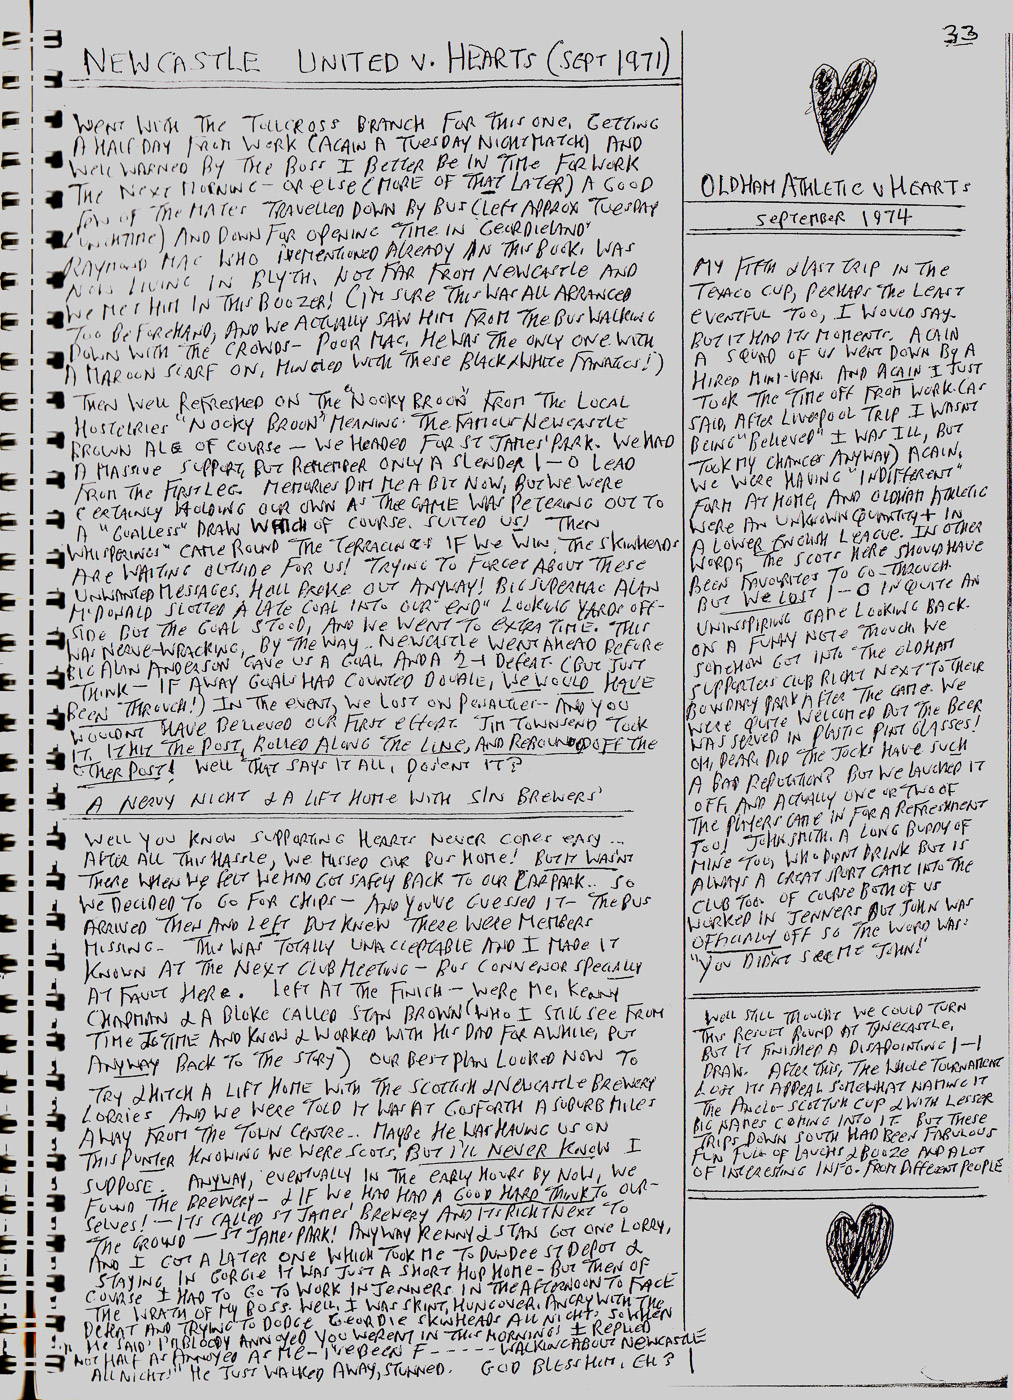 33
NEWCASTLE UNITED V. HEARTS (SEPT 1971)
WENT WITH THE TOLLCROSS BRANCH FOR THIS ONE, GETTING
A HALF DAY FROM WORK (AGAIN A TUESDAY NIGHT MATCH) AND
WELL WARNED BY THE BOSS I BETTER BE IN TIME FOR WORK
THE NEXT MORNING - OR ELSE (MORE OF THAT LATER) A GOOD
FEW OF THE MATES TRAVELLED DOWN BY BUS (LEFT APPROX TUESDAY
LUNCHTIME) AND DOWN FOR OPENING TIME IN "GEORDIELAND"
RAYMOND MAC WHO I MENTIONED ALREADY IN THIS BOOK, WAS
NOW LIVING IN BLYTH, NOT FAR FROM NEWCASTLE AND
WE MET HIM IN THIS BOOZER! (I'M SURE THIS WAS ALL ARRANGED
TOO BEFOREHAND, AND WE ACTUALLY SAW HIM FROM THE BUS WALKING
DOWN WITH THE CROWDS - POOR MAC, HE WAS THE ONLY ONE WITH
A MAROON SCARF ON, MINGLED WITH THESE BLACK & WHITE FANATICS!)
THEN WELL REFRESHED ON THE "NOOKY BROON" FROM THE LOCAL
HOSTELRIES "NOOKY BROON" MEANING THE FAMOUS NEWCASTLE
BROWN ALE OF COURSE - WE HEADED FOR ST JAMES' PARK. WE HAD
A MASSIVE SUPPORT, BUT REMEMBER ONLY A SLENDER 1-0 LEAD
FROM THE FIRST LEG. MEMORIES DIM ME A BIT NOW, BUT WE WERE
CERTAINLY HOLDING OUR OWN AS THE GAME WAS PETERING OUT TO
A "GOALLESS" DRAW WHICH OF COURSE. SUITED US! THEN
WHISPERINGS" CAME ROUND THE TERRACINGS IF WE WIN, THE SKINHEADS
ARE WAITING OUTSIDE FOR US! TRYING TO FORGET ABOUT THESE
UNWANTED MESSAGES, HELL BROKE OUT ANYWAY! BIG SUPERMAC ALAN
M'DONALD SLOTTED A LATE GOAL INTO OUR "END" LOOKING YARDS OFF-
SIDE BUT THE GOAL STOOD, AND WE WENT TO EXTRA TIME. THIS
WAS NERVE-WRACKING, BY THE WAY.. NEWCASTLE WENT AHEAD BEFORE
BIG ALAN ANDERSON GAVE US A GOAL AND A 2-1 DEFEAT. (BUT JUST
THINK - IF AWAY GOALS HAD COUNTED DOUBLE, WE WOULD HAVE
BEEN THROUGH!) IN THE EVENT, WE LOST ON PENALTIES - AND YOU
WOULDNT HAVE BELIEVED OUR FIRST EFFORT. JIM TOWNSEND TOOK
IT, IT HIT THE POST, ROLLED ALONG THE LINE, AND REBOUNDED OFF THE
OTHER POST! WELL THAT SAYS IT ALL, DOSENT IT?
A NERVY NIGHT & A LIFT HOME WITH S/N BREWERS'
WELL YOU KNOW SUPPORTING HEARTS NEVER COMES EASY...
AFTER ALL THIS HASSLE, WE MISSED OUR BUS HOME! BUT IT WASN'T
THERE WHEN WE FELT WE HAD GOT SAFELY BACK TO OUR CARPARK.. SO
WE DECIDED TO GO FOR CHIPS - AND YOU'VE GUESSED IT - THE BUS
ARRIVED THEN AND LEFT BUT KNEW THERE WERE MEMBERS
MISSING - THIS WAS TOTALLY UNACCEPTABLE AND I MADE IT
KNOWN AT THE NEXT CLUB MEETING - BUS CONVENOR SPECIALLY
AT FAULT HERE. LEFT AT THE FINISH - WERE ME, KENNY
CHAPMAN & A BLOKE CALLED STAN BROWN (WHO I STILL SEE FROM
TIME TO TIME AND KNOW & WORKED WITH HIS DAD FOR A WHILE, BUT
ANYWAY BACK TO THE STORY) OUR BEST PLAN LOOKED NOW TO
TRY & HITCH A LIFT HOME WITH THE SCOTTISH & NEWCASTLE BREWERY
LORRIES AND WE WERE TOLD IT WAS AT GOSFORTH A SUBURB MILES
AWAY FROM THE TOWN CENTRE.. MAYBE HE WAS HAVING US ON
THIS PUNTER KNOWING WE WERE SCOTS, BUT I'LL NEVER KNOW I
SUPPOSE. ANYWAY, EVENTUALLY IN THE EARLY HOURS BY NOW, WE
FOUND THE BREWERY - & IF WE HAD HAD A GOOD HARD THINK TO OUR-
SELVES! - ITS CALLED ST JAMES' BREWERY AND ITS RIGHT NEXT TO
THE GROUND - ST JAMES PARK! ANYWAY KENNY & STAN GOT ONE LORRY,
AND I GOT A LATER ONE WHICH TOOK ME TO DUNDEE ST DEPOT &
STAYING IN GORGIE IT WAS JUST A SHORT HOP HOME - BUT THEN OF
COURSE I HAD TO GO TO WORK IN JENNERS IN THE AFTERNOON TO FACE
THE WRATH OF MY BOSS. WELL, I WAS SKINT, HUNGOVER, ANGRY WITH THE
DEFEAT AND TRYING TO DODGE GEORDIE SKINHEADS ALL NIGHT, SO WHEN
HE SAID "I'M BLOODY ANNOYED YOU WERENT IN THIS MORNING" I REPLIED
"NOT HALF AS ANNOYED AS ME - I'VE BEEN F------ WALKING ABOUT NEWCASTLE
ALL NIGHT!" HE JUST WALKED AWAY, STUNNED. GOD BLESS HIM, EH?
OLDHAM ATHLETIC V HEARTS
SEPTEMBER 1974
MY FIFTH & LAST TRIP IN THE
TEXACO CUP, PERHAPS THE LEAST
EVENTFUL TOO, I WOULD SAY.
BUT IT HAD ITS MOMENTS. AGAIN
A SQUAD OF US WENT DOWN BY A
HIRED MINI-VAN. AND AGAIN I JUST
TOOK THE TIME OFF FROM WORK (AS
SAID, AFTER LIVERPOOL TRIP I WASNT
BEING "BELIEVED" I WAS ILL, BUT
TOOK MY CHANCES ANYWAY) AGAIN,
WE WERE HAVING "INDIFFERENT"
FORM AT HOME, AND OLDHAM ATHLETIC
WERE AN UNKNOWN QUANTITY & IN
A LOWER ENGLISH LEAGUE. IN OTHER
WORDS, THE SCOTS HERE SHOULD HAVE
BEEN FAVOURITES TO GO THROUGH.
BUT WE LOST 1-0 IN QUITE AN
UNINSPIRING GAME LOOKING BACK.
ON A FUNNY NOTE THOUGH, WE
SOMEHOW GOT INTO THE OLDHAM
SUPPORTERS CLUB RIGHT NEXT TO THEIR
BOUNDARY PARK AFTER THE GAME. WE
WERE QUITE WELCOMED BUT THE BEER
WAS SERVED IN PLASTIC PINT GLASSES!
OH, DEAR, DID THE JOCKS HAVE SUCH
A BAD REPUTATION? BUT WE LAUGHED IT
OFF, AND ACTUALLY ONE OR TWO OF
THE PLAYERS CAME IN FOR A REFRESHMENT
TOO! JOHN SMITH, A LONG BUDDY OF
MINE TOO, WHO DIDNT DRINK BUT IS
ALWAYS A GREAT SPORT CAME INTO THE
CLUB TOO. OF COURSE BOTH OF US
WORKED IN JENNERS BUT JOHN WAS
OFFICIALLY OFF SO THE WORD WAS:
"YOU DIDN'T SEE ME JOHN!"
WELL STILL THOUGHT WE COULD TURN
THIS RESULT ROUND AT TYNECASTLE,
BUT IT FINISHED A DISAPOINTING 1-1
DRAW. AFTER THIS, THE WHOLE TOURNAMENT
LOST ITS APPEAL SOMEWHAT NAMING IT
THE ANGLO-SCOTTISH CUP & WITH LESSER
BIG NAMES COMING INTO IT. BUT THESE
TRIPS DOWN SOUTH HAD BEEN FABULOUS
FUN, FULL OF LAUGHS & BOOZE AND A LOT
OF INTERESTING INFO. FROM DIFFERENT PEOPLE